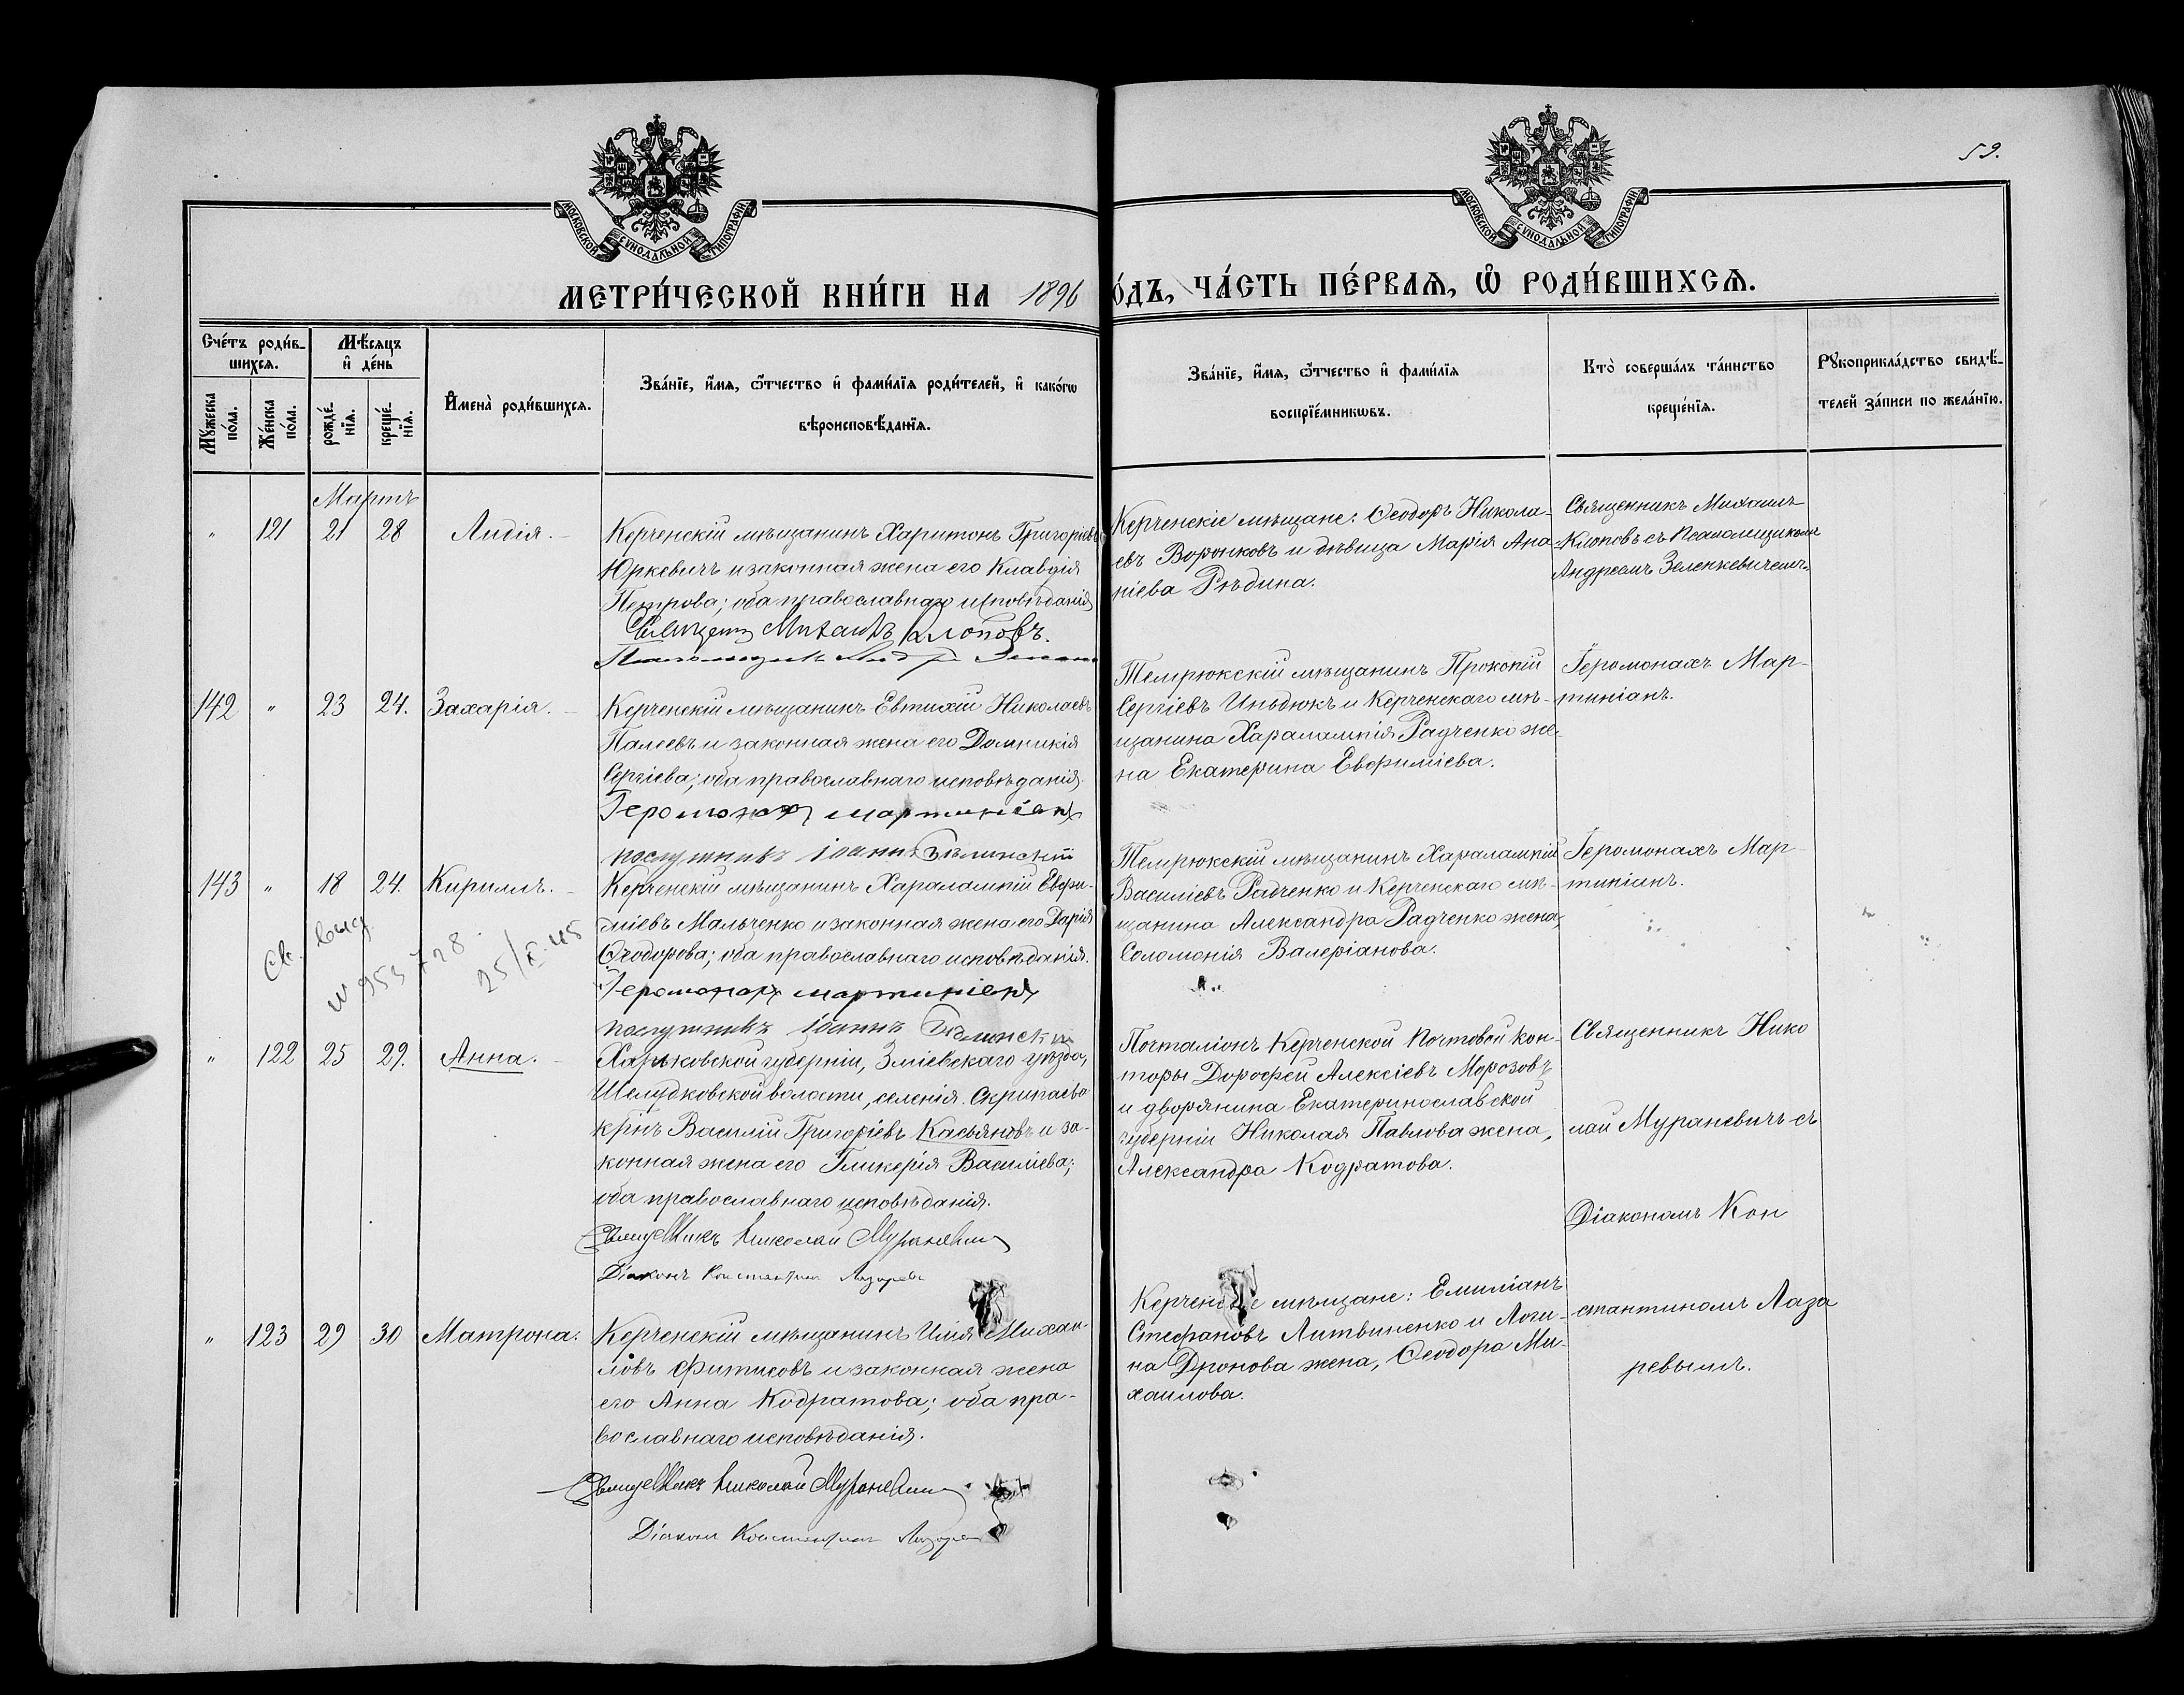 59.
МОСКОВСКОЙ СУНОДАЛЬНОЙ ТИПОГРАФІИ
МОСКОВСКОЙ СУНОДАЛЬНОЙ ТИПОГРАФІИ
МЕТРИ́ЧЕСКОЙ КНИ́ГИ НА 1896
О́ДЪ, ЧА́СТЬ ПЕ́РВАѦ, Ѡ҆ РОДИ́ВШИХСѦ.
Сче́тъ роди́в-
шихсѧ.
Мꙋ́жеска по́ла.
Же́нска по́ла.
Мѣ́сѧцъ
и҆ де́нь
рожде́-
нїѧ.
креще́-
нїѧ.
И҆мена̀ роди́вшихсѧ.
Зва́нїе, и҆́мѧ, ѻ҆́тчество и҆ фами́лїѧ роди́телей, и҆ како́гѡ
вѣроисповѣ́данїѧ.
Зва́нїе, и҆́мѧ, ѻ҆́тчество и҆ фами́лїѧ
воспрїе́мникѡвъ.
Кто̀ соверша́лъ та́инство
креще́нїѧ.
Рꙋкоприкла́дство свидѣ́-
телей за́писи по жела́нїю.
Мартъ
" 121 21 28 Лидія.
Керченскій мѣщанинъ Харитонъ Григоріевъ
Юркевичъ и законная жена его Клавдія
Петрова; оба православнаго исповѣданія
Священ Михаилъ Клоповъ.
Псаломщикъ
Керченскіе мѣщане: Ѳеодоръ Никола-
евъ Воронковъ и дѣвица Марія Ана-
ніева Рѣдина.
Священникъ Михаилъ
Клоповъ съ Псаломщикомъ
Андреемъ Зеленкевичемъ.
142 " 23 24. Захарія.
Керченскій мѣщанинъ Евтихій Николаевъ
Палеевъ и законная жена его Домникія
Сергіева; оба православнаго исповѣданія.
Іеромонахъ Мартиніанъ
послушникъ Іоаннъ Бѣлинскій
Темрюкскій мѣщанинъ Прокопій
Сергіевъ и Керченскаго мѣ-
щанина Харалампія Радченко же-
на Екатерина Евфиміева.
Іеромонахъ Мар-
тиніанъ.
143 " 18 24. Кириллъ.
Керченскій мѣщанинъ Харалампій Евфи-
міевъ Мальченко и законная жена его Дарія
Ѳеодорова; оба православнаго исповѣданія.
Іеромонахъ Мартиніанъ
послушникъ Іоаннъ Бѣлинскій
Св. выд
№ 953728.
25/X-45
Темрюкскій мѣщанинъ Харалампій
Василіевъ Радченко и Керченскаго мѣ-
щанина Александра Радченко жена,
Соломонія Валеріанова.
Іеромонахъ Мар-
тиніанъ.
" 122 25 29. Анна.
Харьковской губерніи, Зміевскаго уѣзда,
Шелудковской волости, селенія Скрипаево
кр-нъ Василій Григоріевъ Касьяновъ и за-
конная жена его Гликерія Василіева;
оба православнаго исповѣданія.
Священникъ Николай Мураневичъ
Діаконъ Константинъ Лазаревъ
Почталіонъ Керченской Почтовой кон-
торы Дорофей Алексіевъ Морозовъ
и дворянина Екатеринославской
губерніи Николая Павлова жена,
Александра Кодратова.
Священникъ Нико
лай Мураневичъ съ
Діакономъ Кон
стантиномъ Лаза
ревымъ.
" 123 29 30 Матрона.
Керченскій мѣщанинъ Илія Михаи-
ловъ Фитисовъ и законная жена
его Анна Кодратова; оба пра-
вославнаго исповѣданія.
Священникъ Николай Мураневичъ
Діаконъ Константинъ Лазаревъ
Керченскіе мѣщане: Емиліанъ
Стефановъ Литвиненко и Логи-
на Дронова жена, Ѳеодора Ми-
хаилова.